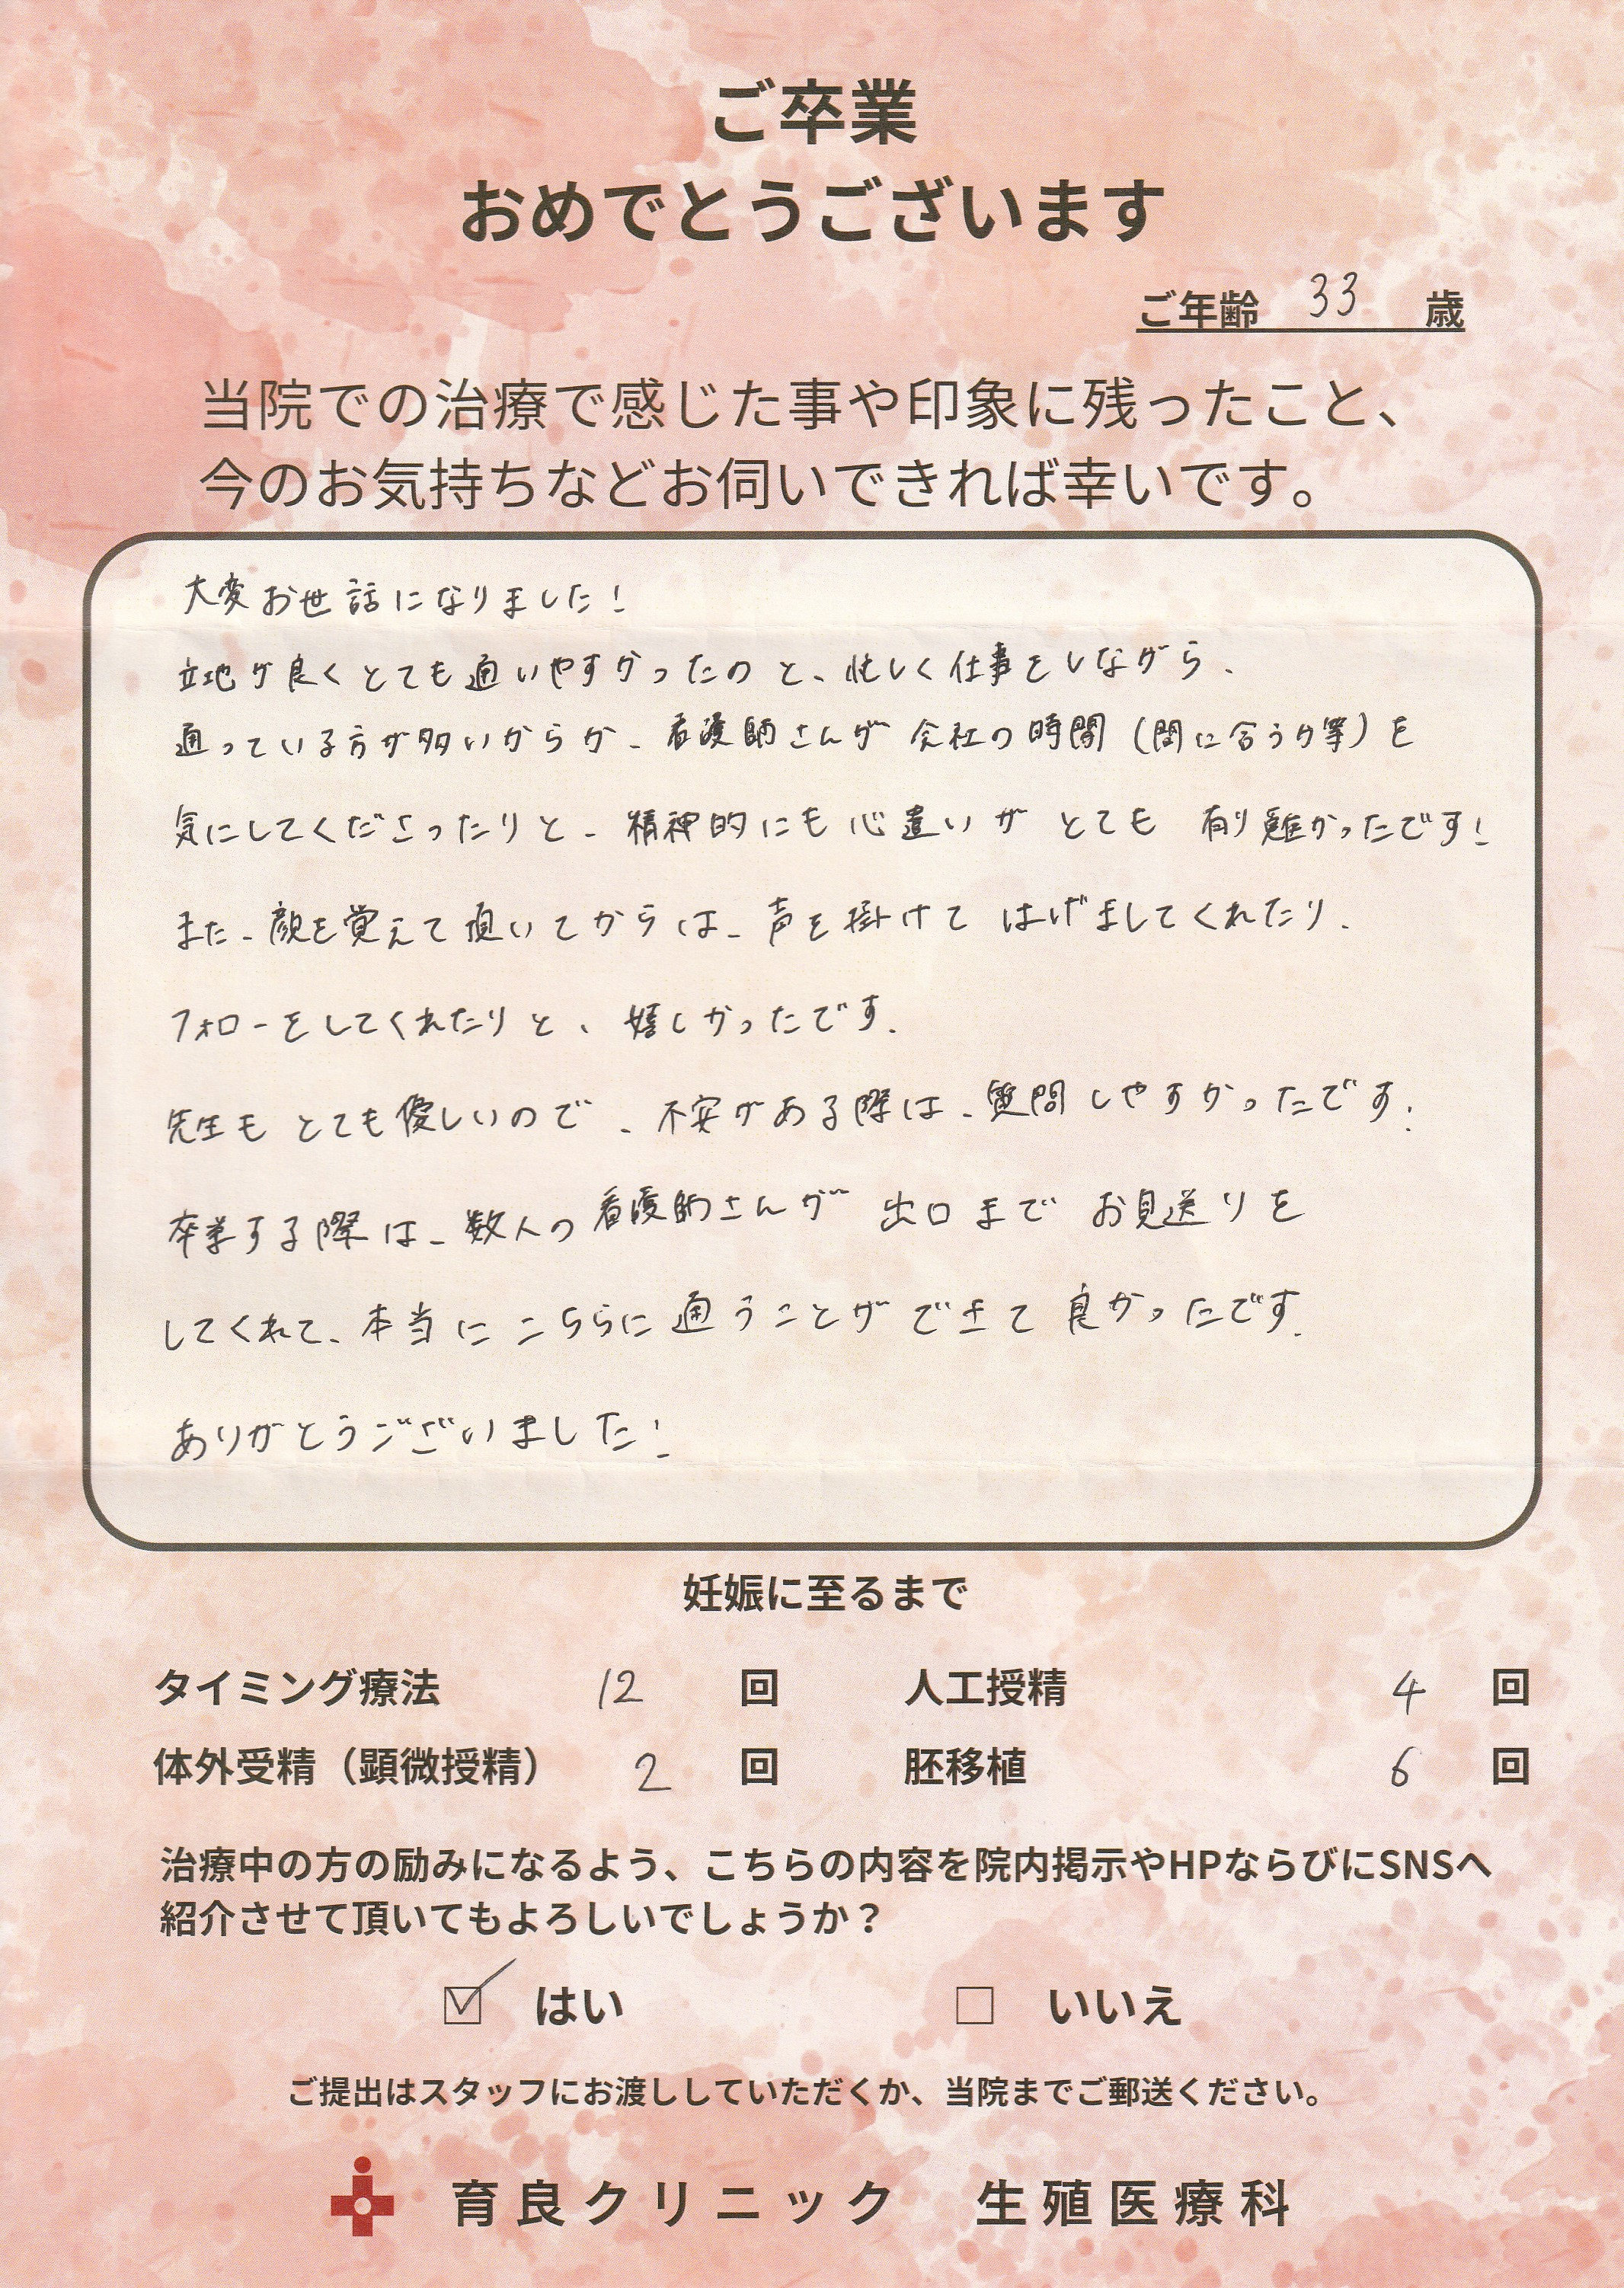 ご卒業
おめでとうございます
ご年齢 33 歳
当院での治療で感じた事や印象に残ったこと、
今のお気持ちなどお伺いできれば幸いです。
大変お世話になりました!
立地が良くとても通いやすかったのと、忙しく仕事をしながら、
通っている方が多いからか、看護師さんが会社の時間(間に合うか等)を
気にしてくださったりと、精神的にも心遣いがとても有り難かったです!
また、顔を覚えて頂いてからは、声を掛けてはげましてくれたり、
フォローをしてくれたりと、嬉しかったです。
先生もとても優しいので、不安がある際は、質問しやすかったです!
卒業する際は、数人の看護師さんが出口までお見送りを
してくれて、本当にこちらに通うことができて良かったです。
ありがとうございました!
妊娠に至るまで
タイミング療法 12 回 人工授精 4 回
体外受精(顕微授精) 2 回 胚移植 6 回
治療中の方の励みになるよう、こちらの内容を院内掲示やHPならびにSNSへ
紹介させて頂いてもよろしいでしょうか?
☑ はい □ いいえ
ご提出はスタッフにお渡ししていただくか、当院までご郵送ください。
育良クリニック 生殖医療科